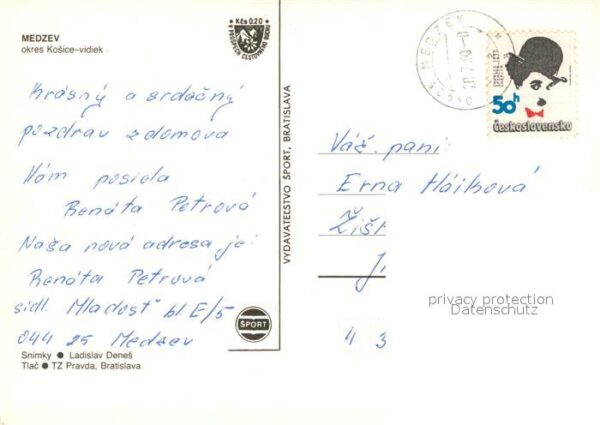 MEDZEV
okres Košice-vidiek
Kčs 0.20
V PROSPECH CESTOVNÉHO RUCHU
Krásný a srdačný
pozdrav z domova
Vám posiela
Renáta Petrová
Naša nová adresa je:
Renáta Petrová
sídl. Mladosť bl. E/5
044 25 Medzev
Snímky ● Ladislav Deneš
Tlač ● TZ Pravda, Bratislava
VYDAVATEĽSTVO ŠPORT, BRATISLAVA
ŠPORT
MEDZEV
50h
Československo
Váž. pani
Erna Háiková
privacy protection
Datenschutz
4 3